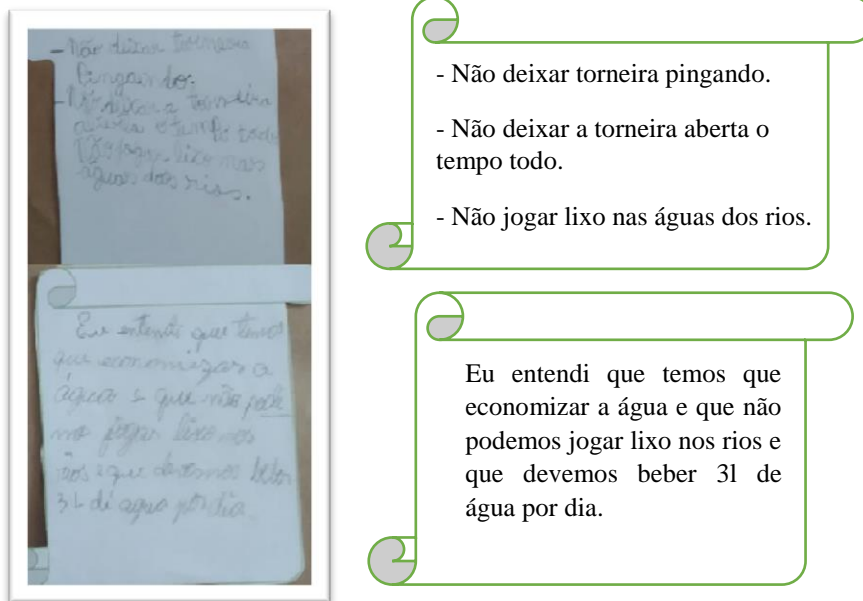 - Não deixar torneira
Pingando.
- Não deixar a torneira
aberta o tempo todo
Não jogar lixo nas
águas dos rios.
Eu entendi que temos
que economizar a
água e que não pode
mo jogar lixo nos
rios e que devemos beber
3L de agua por dia.
- Não deixar torneira pingando.
- Não deixar a torneira aberta o
tempo todo.
- Não jogar lixo nas águas dos rios.
Eu entendi que temos que
economizar a água e que não
podemos jogar lixo nos rios e
que devemos beber 3l de
água por dia.